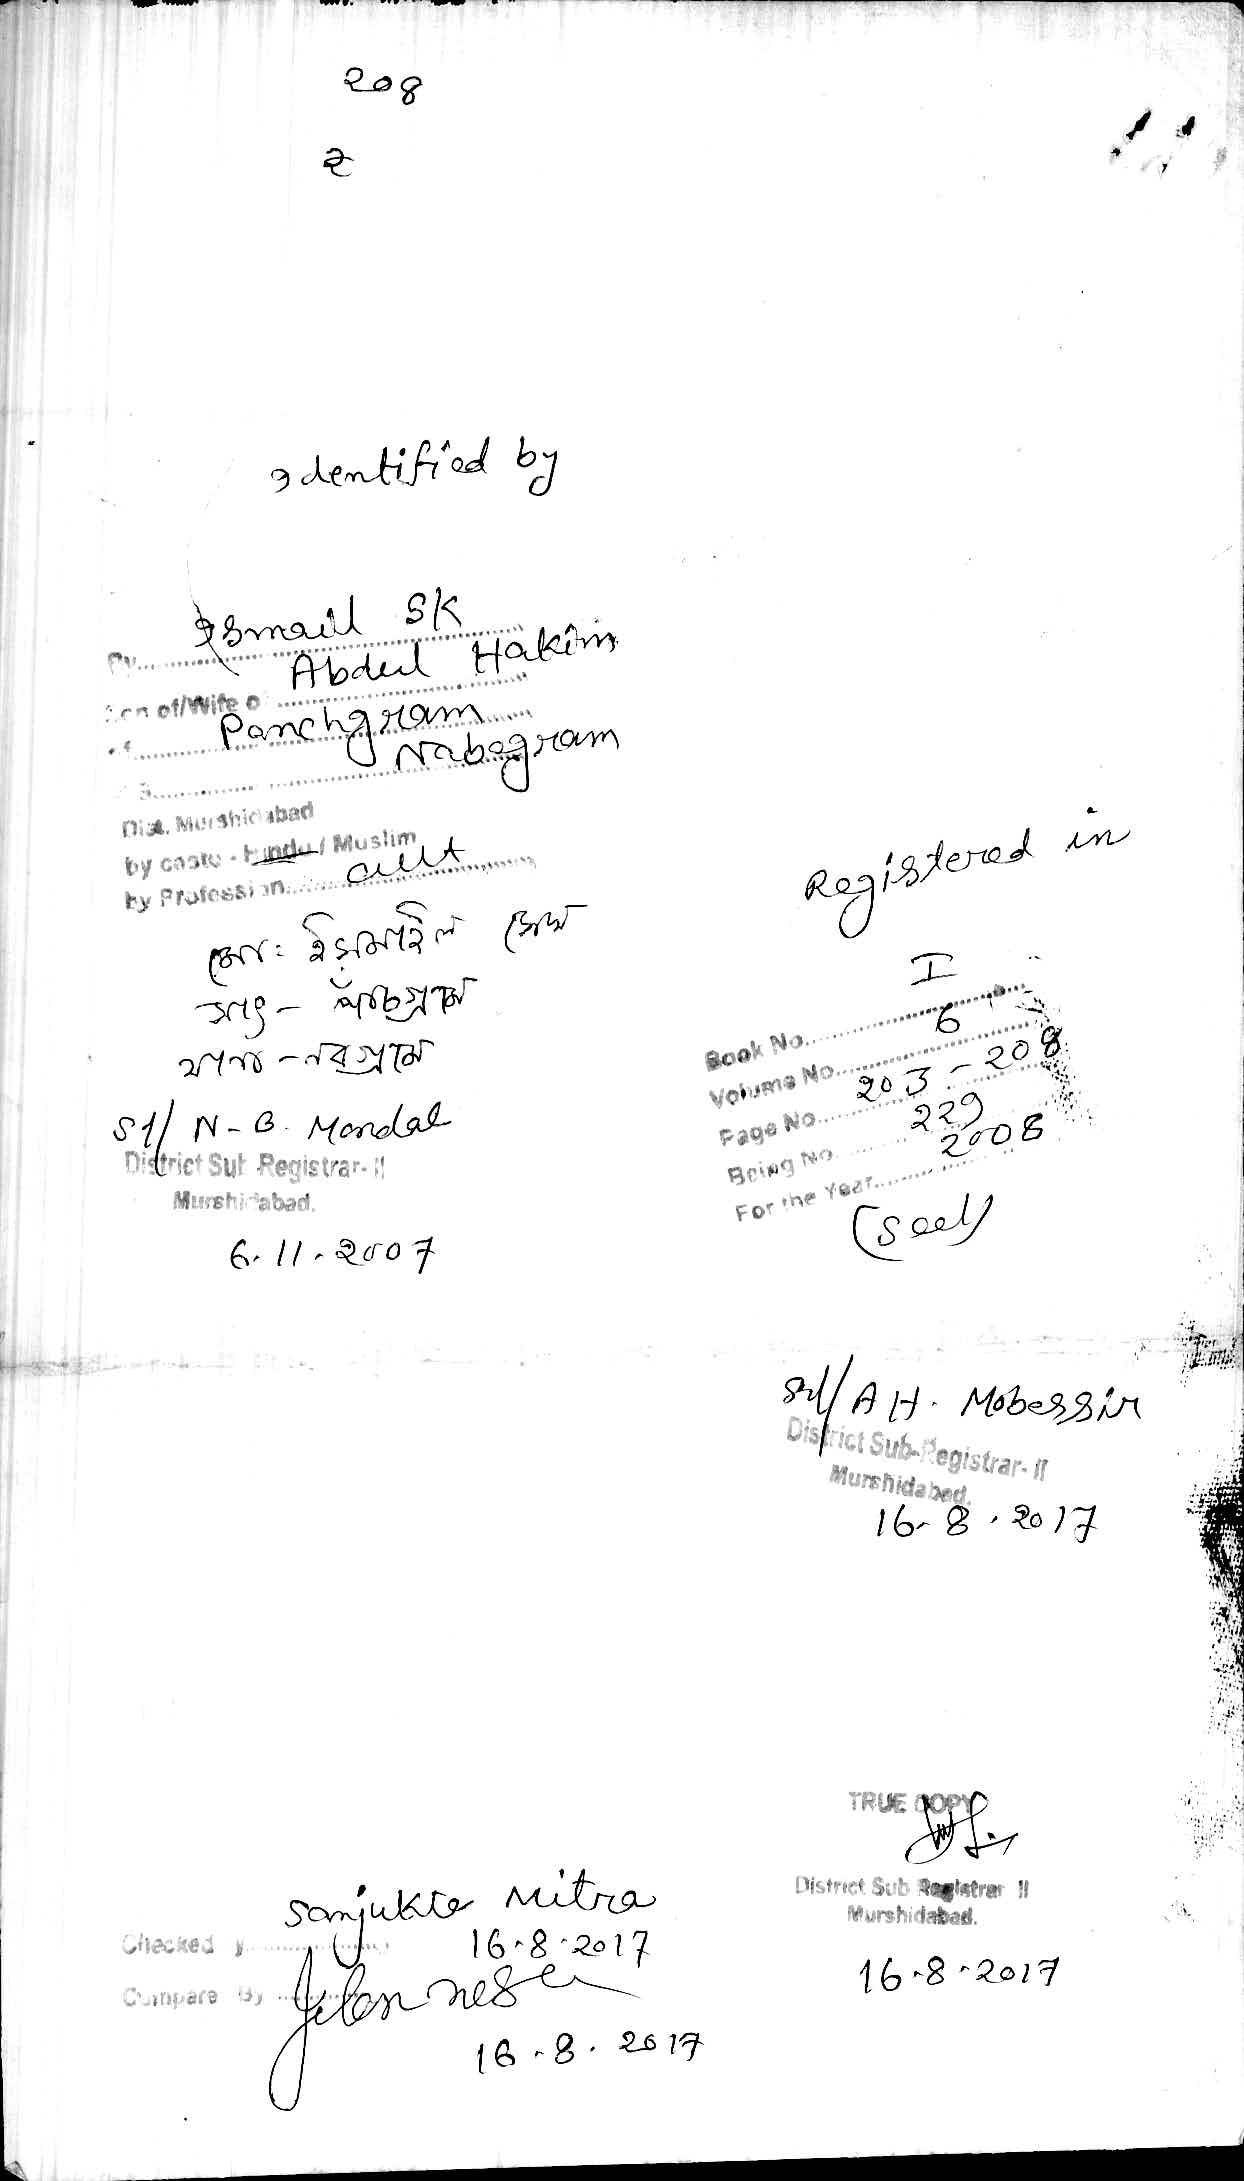 208
২
Identified by
Ismail SK
By
Abdul Hakim
Son of/Wife of
Panchgram
of
Nabagram
Dist. Murshidabad
by caste - Hindu / Muslim
by Profession cult
মোঃ ইসমাইল সেখ
সাং - পাঁচগ্রাম
থানা - নবগ্রাম
Sd/ N. B. Mondal
District Sub-Registrar-II
Murshidabad.
6.11.2007
Registered in
Book No. I
Volume No. 6
Page No. 203 - 208
Being No. 229
For the Year 2008
(Seal)
Sd/ A H. Mobassir
District Sub-Registrar-II
Murshidabad.
16.8.2017
TRUE COPY
District Sub Registrar II
Murshidabad.
16.8.2017
Sanjukta Mitra
Checked By
16.8.2017
Compare By
16.8.2017